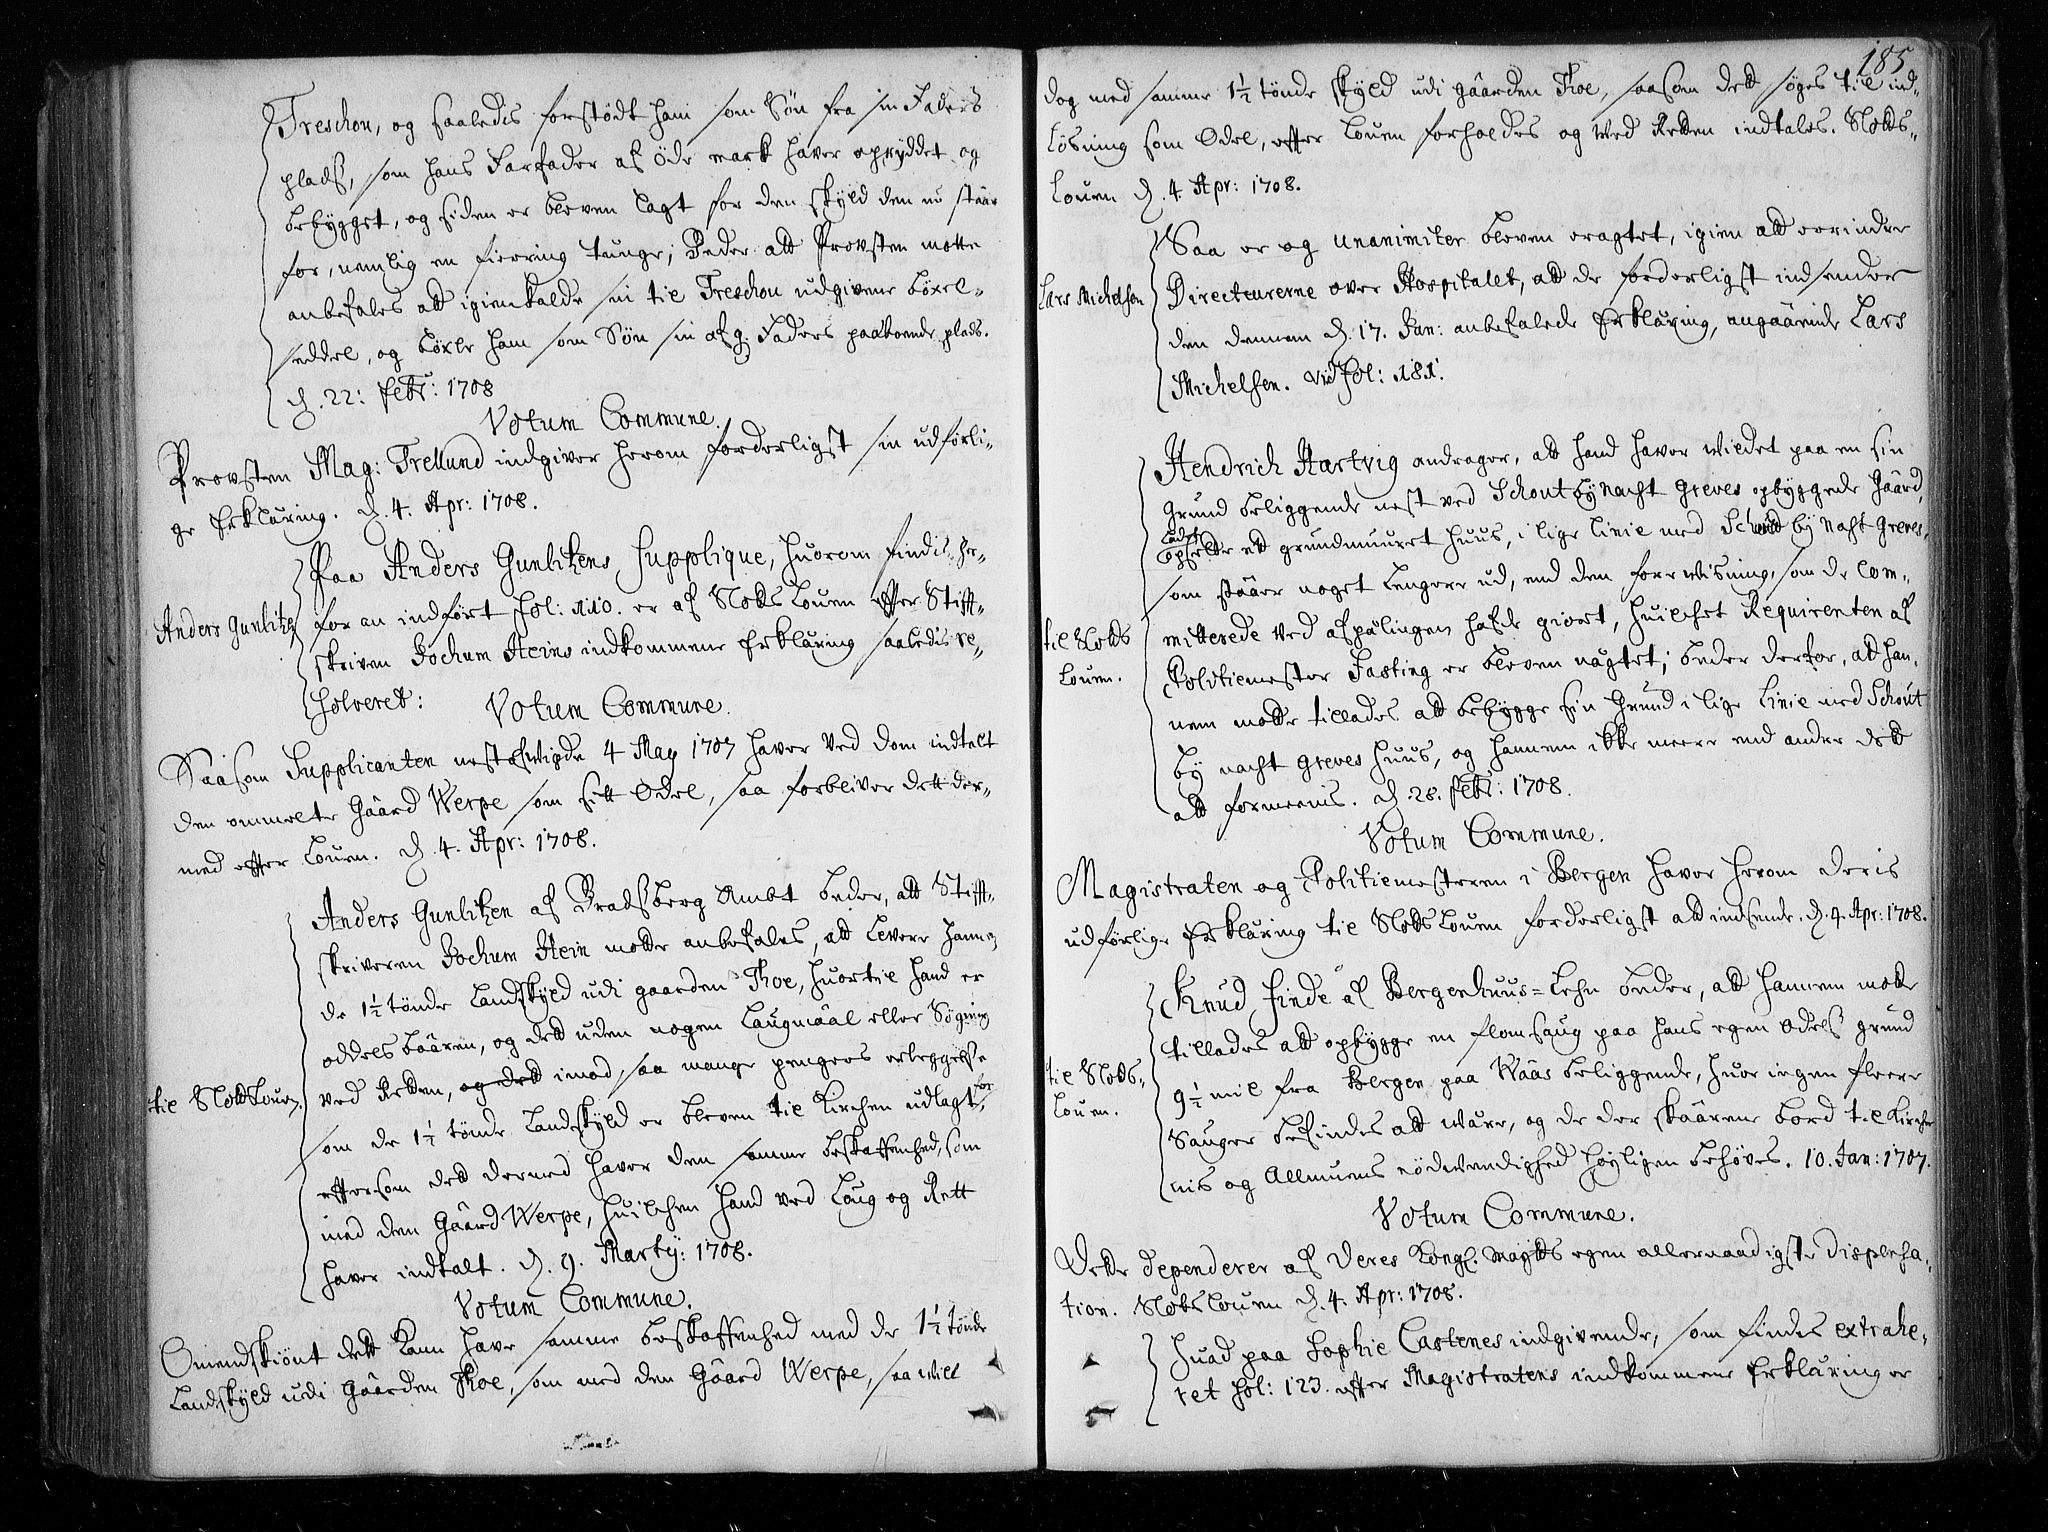 Treschou, og saaledis forstødt ham som Søn fra sin Faders
plads, som hans Farfader af øde mark haver opryddet og
bebygget, og siden er bleven lagt for den skyld den nu staar
for, nemlig en fierring tunge; Beder att Provsten motte
anbefales att igienkalde sin til Treschou udgivene böxel-
seddel, og böxle ham som Søn sin afg. Faders paaboende plads.
d. 22: febr: 1708
Votum Commune.
Provsten Mag: Trellund indgiver herom forderligst sin udførli-
ge Erklæring. d. 4. Apr: 1708.
Anders Gunliks
Paa Anders Gunliksens Supplique, huorom findis her-
for an indført fol: 110. er af SlotsLouen effter Stifft-
skriven Jochum Heins indkommene Erklæring saaledis re-
solveret:
Votum Commune.
Saasom Supplicanten nest afvigde 4 May 1707 haver ved dom indtalt
den ommelte Gaard Werpe som sitt Odel, saa forbliver dett der-
med effter Louen. d. 4. Apr: 1708.
til SlottsLouen.
Anders Gunliksen af Bradsberg Ambt beder, att Stifft-
skriveren Jochum Hein motte anbefales, att levere hannem
de 1½ tønde Landskyld udi gaarden Thoe, huortil hand er
oddelsbaaren, og dett uden nogen Laugmaal eller Søgning
ved Retten, og dett imod saa mange pengers erleggelse
som de 1½ tønde Landskyld er bleven til Kirchen udlagt for,
effterson dett dermed haver den samme beskaffenhed, som
med den Gaard Werpe, huilchen hand ved Loug og Rett
haver indtalt. d. 9. Martij: 1708.
Votum Commune.
Omendskiønt dett kann have samme beskaffenhed med de 1½ tønde
Landskyld udi Gaarden Thoe, som med den Gaard Werpe, saa will
185
dog med samme 1½ tønde skyld udi gaarden Thoe, saasom dett søges til ind-
løsning som Odel, effter Louen forholdes og ved Retten indtales. Slotts-
Louen d. 4. Apr: 1708.
Lars Michelsen
Saa er og unanimiter bleven eragtet, igien att erindre
Directeurerne over Hospitalet, att de forderligst indsender
den dennem d. 17. Jan: anbefalede Erklæring, angaaende Lars
Michelsen. vid fol: 181.
til Slotts
Louen.
Hendrich Hartvig andrager, att hand haver wildet paa en sin
Grund beliggende nest ved Schoutbynacht Greves opbyggede Gaard,
Ladet
opsette ett grundmuuret huus, i lige linie med Schout by Nacht Greves,
som staaer noget lengere ud, end den forewisning, som de Com-
mitterede ved afpælingen hafde giort, huilchet Requirenten af
Politiemester Fasting er bleven nægtet; beder derfor, att han-
nem motte tillades att bebygge sin Grund i lige Linie med Schout
by nacht Greves huus, og hannem ikke meere end andre dett
att formeenis. d. 28. febr: 1708.
Votum Commune.
Magistraten og Politiemesteren i Bergen haver herom deris
udførlige Erklæring til SlottsLouen forderligst att indsende. d. 4. Apr: 1708.
til Slotts-
Louen.
Knud Finde af Bergenhuus=Lehn beder, att hannem motte
tillades att opbygge en flomsaug paa hans egen odels grund
9½ mil fra Bergen paa Waas beliggende, huor ingen fleere
Sauger befindes att være, og de der skaarne bord til Kircher-
nis og Allmuens nødwendighed høyligen behøves. 10. Jan: 1707.
Votum Commune.
Dette dependerer af Deres Kongl. Maytts egen allernaadigste Dispensa-
tion. SlottsLouen d. 4. Apr: 1708.
Huad paa Sophie Castenes indgivende, som findes extrahe-
ret fol: 123. effter Magistratens indkommene Erklæring er